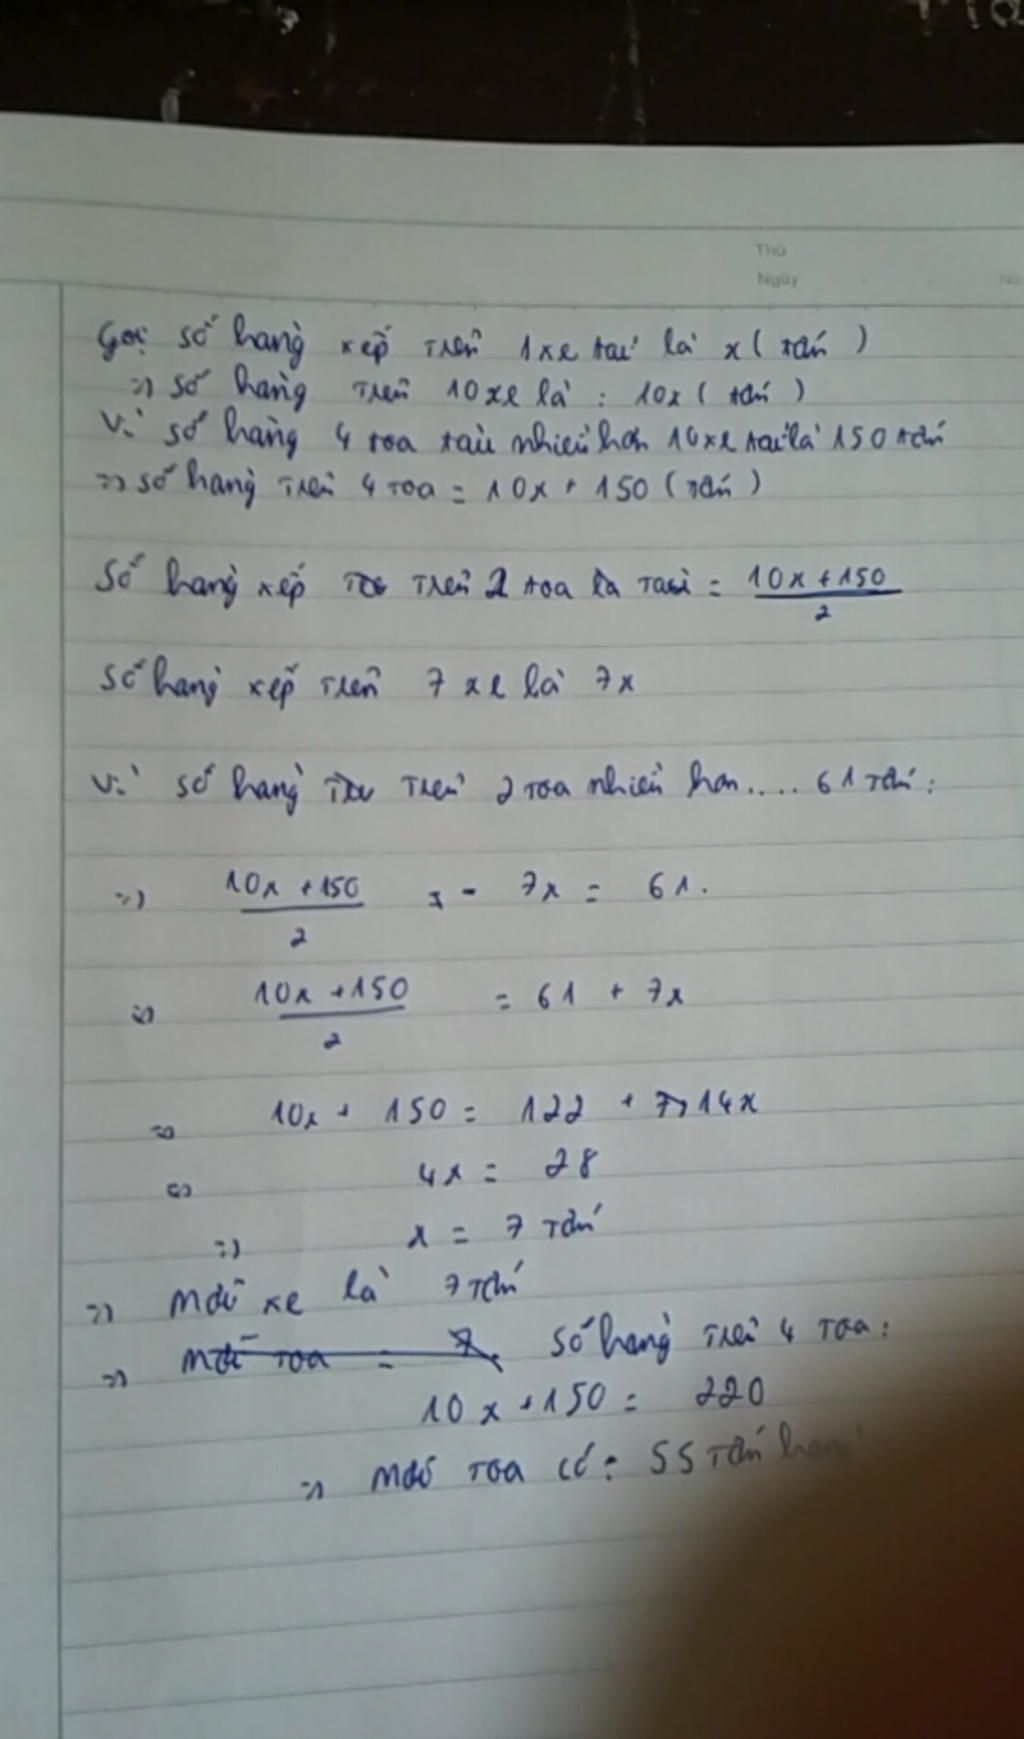 Thứ
Ngày
No
Gọi số hàng xếp trên 1 xe tải là x ( tấn )
=> số hàng trên 10 xe là : 10x ( tấn )
Vì số hàng 4 toa tàu nhiều hơn 10 xe tải là 150 tấn
=> số hàng trên 4 toa = 10x + 150 ( tấn )
Số hàng xếp trên 2 toa tàu = 10x + 150 / 2
Số hàng xếp trên 7 xe là 7x
Vì số hàng trên 2 toa nhiều hơn .... 61 tấn :
=> 10x + 150 / 2 - 7x = 61.
<=> 10x + 150 / 2 = 61 + 7x
=> 10x + 150 = 122 + 14x
<=> 4x = 28
=> x = 7 tấn
=> Mỗi xe là 7 tấn
=> Mỗi toa = 7 Số hàng trên 4 toa :
10x + 150 = 220
=> Mỗi toa có : 55 tấn hàng